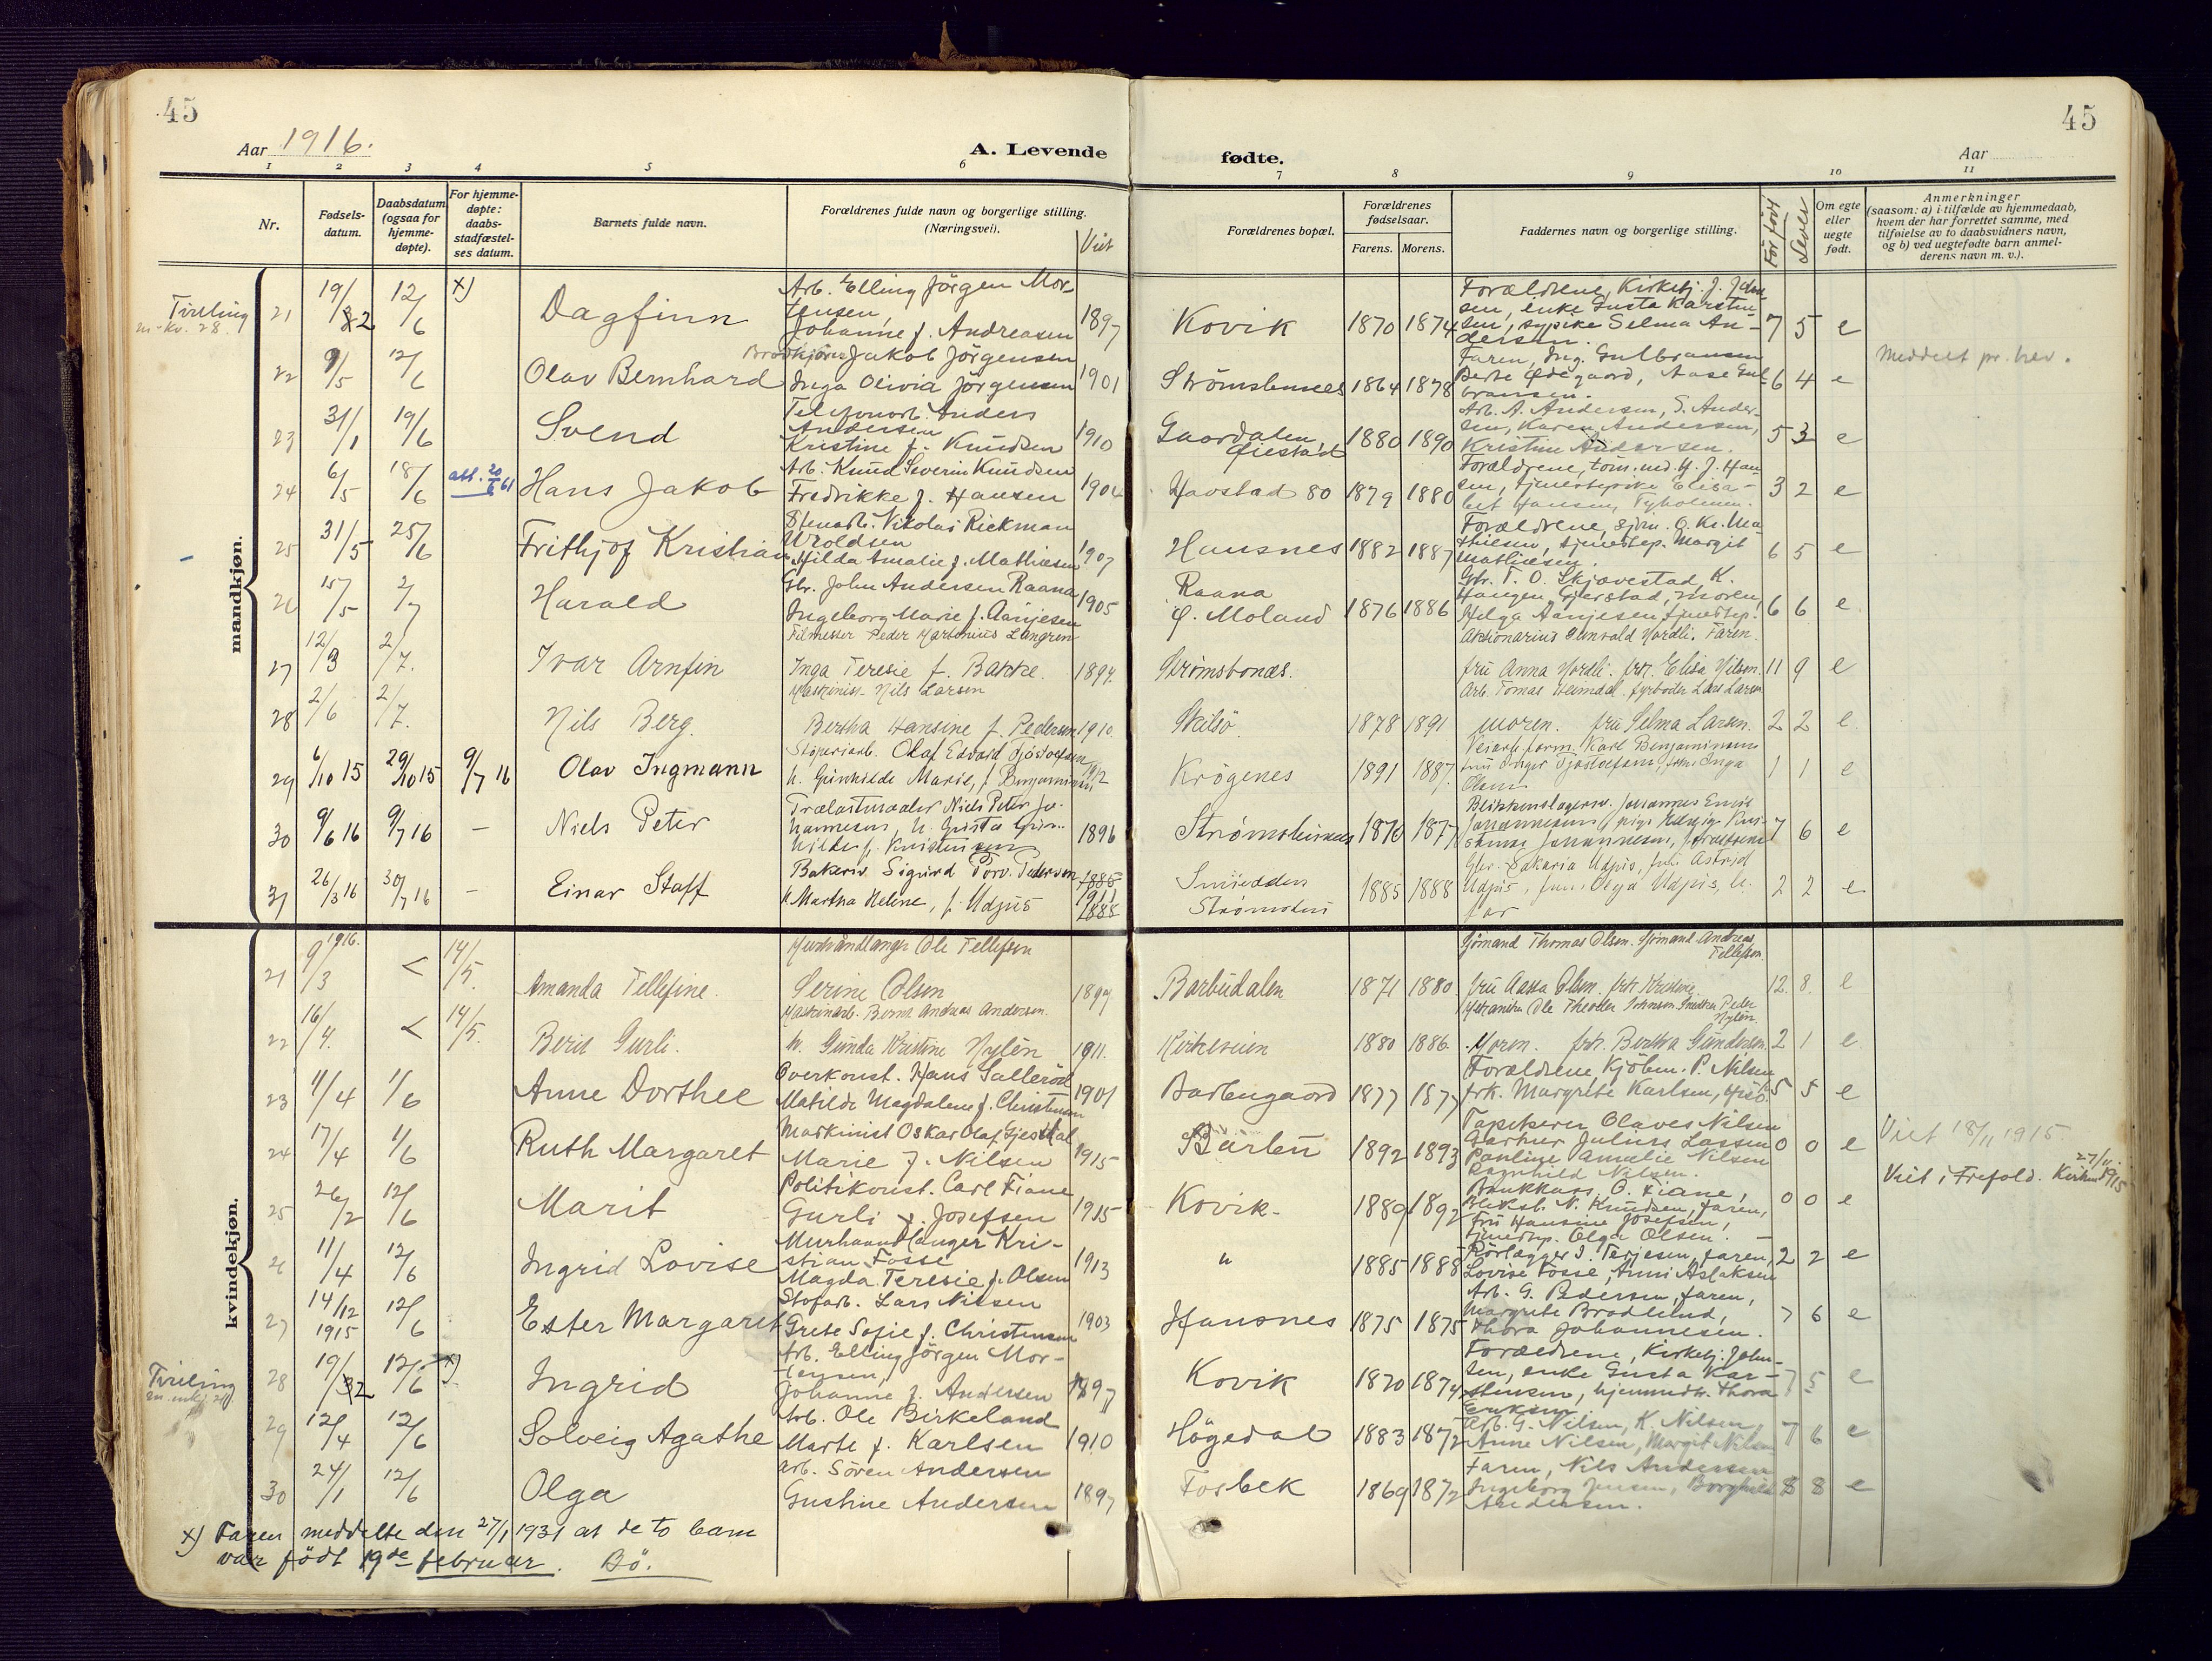 45
45
Aar 1916.
A. Levende
fødte.
Aar
1 2 3 4 5 6 7 8 9 10 11
Nr.
Fødsels-
datum.
Daabsdatum
(ogsaa for
hjemme-
døpte).
For hjemme-
døpte:
daabs-
stadfæstel-
ses datum.
Barnets fulde navn.
Forældrenes fulde navn og borgerlige stilling.
(Næringsvei).
Viet
Forældrenes bopæl.
Forældrenes
fødselsaar.
Farens. Morens.
Faddernes navn og borgerlige stilling.
Før født
Lever
Om egte
eller
uegte
født.
Anmerkninger
(saasom: a) i tilfælde av hjemmedaab,
hvem der har forrettet samme, med
tilføielse av to daabsvidners navn,
og b) ved uegtefødte barn anmel-
derens navn m. v.).
mandkjøn.
Tvilling
m. kv. 28.
21 19/2 12/6 x) Dagfinn
Arb. Elling Jörgen Mor-
tensen,
Johanne f. Andreasen 1897
Kovik 1870 1874
Forældrene, Kirketj. J. John-
sen, enke Gusta Karsten-
sen, sypike Selma An-
dersen.
7 5 e
22 9/5 12/6 Olav Bernhard
Brødkjører Jakob Jörgensen
Inga Olivia Jörgensen 1901
Strömsbusnes 1864 1878
Faren, Ing. Gulbransen
Berte Ødegaard, Aase Gul-
bransen.
6 4 e
Meddelt pr. brev.
23 31/1 19/6 Svend
Telefonarb. Anders
Andersen
Kristine f. Knudsen 1910
Gaardalen, Øiestad 1880 1890
Arb. A. Andersen, S. Ander-
sen, Karen Andersen,
Kristine Andersen.
5 3 e
24 6/5 18/6 att. 20/6 61 Hans Jakob
Arb. Knud Severin Knudsen
Fredrikke f. Hansen 1904
Havstad 80 1879 1880
Forældrene, töm. md. H. J. Han-
sen, tjenestepike Elisa-
bet Hansen, Tyholmen.
3 2 e
25 31/5 25/6 Frithjof Kristian
Stenarb. Nikolai Rickman
Wroldsen
Hilda Amalie f. Mathiesen 1907
Hausnes 1882 1887
Forældrene, sjöm. O. Kr. Ma-
thiesen, tjenestep. Margit
Mathiesen.
6 5 e
26 15/5 2/7 Harald
Gbr. John Andersen Raana
Ingeborg Marie f. Aanjesen 1905
Raana
Ö. Moland 1876 1886
Gbr. T. O. Skjævestad, K.
Haugen, Gjerstad, moren,
Helga Aanjesen, tjenestep.
6 6 e
27 12/3 2/7. Ivar Arnfin
Filmester Peder Martinius Langren
Inga Teresie f. Bakke. 1894.
Strömsbonæs.
Aktionarius Gunvald Nordli. Faren.
fru Anna Nordli. frk. Elisa Nilsen.
11 9 e
28 2/6 2/7. Nils Berg.
Maskinist Nils Larsen
Bertha Hansine f. Pedersen 1910.
Skilsö. 1878 1891
Arb. Tomas Heimdal. fyrböder Lars Larsen
moren. fru Selma Larsen.
2 2 e
29 6/10 15 29/10 15 9/7 16 Olav Ingmann
Støperiarb. Olaf Edvard Tjöstolfsen
h. Gunhilde Marie, f. Benjaminsen 1912
Krögenes 1891 1887.
Veiarb. form. Karl Benjaminsen
fru Inger Tjöstolfsen, frk. Inga
Olsen
1 1 e
30 9/6 16 9/7 16 – Niels Peter
Trælastmaaler Niels Peter Jo-
hannesen, h. Grista Gun-
hilde f. Kristensen 1896
Strömsbusnes 1870 1877
Blikkenslagersv. Johannes Emil
Johannesen, pige Hedvig Kris-
7 6 e
31 26/3 16 30/7 16 – Einar Staff
Bakersv. Sigurd Torv. Pedersen
h. Martha Helene, f. Udjus 1885 1911 1888
Smiedden
Strømsbu 1885 1888
Gbr. Zakaria Udjus, fru Astrid
Udjus, fru Olga Udjus, b.
far
2 2 e
kvindekjøn.
21 1916. 9/3 < 14/5. Amanda Tellefine.
Murhåndlanger Ole Tellefsen
Serine Olsen 1897
Barbudalen 1871 1880
Sjömand Thomas Olsen. Sjömand Andreas
Tellefsen.
fru Aasta Olsen. frk Kristine
12. 8. e
22 16/4. < 14/5. Berit Gurli.
Maskinarb. Bernt Andreas Andersen.
h. Gunda Kristine Nylén 1911.
Kirkeveien 1880 1886.
Mekaniker Ole Theodor Johnson. Snedker Peder
Nylén.
Moren. frk. Bertha Gundersen.
2 1 e
23 11/4 1/6 Anne Dorthee
Overkonst. Hans Salleröd
Matilde Magdalene f. Christensen 1901
Barbugaard 1877 1877
Forældrene Kjöbm. P. Nilsen
frk. Margrete Karlsen, Hisö.
5 5 e
24 17/4 1/6 Ruth Margaret
Maskinist Oskar Olaf Gjesdal
Marie f. Nilsen 1915
Barbu 1892 1893
Tapetserer Olaves Nilsen
Gartner Julius Larsen
Pauline Amalie Nilsen
Ragnhild Nilsen.
0 0 e
Viet 18/11 1915
25 26/2 12/6 Marit
Politikonst. Carl Fiane
Gurli f. Josefsen 1915
Kovik. 1889 1892
Bankkass. O. Fiane,
Bliksl. N. Knudsen, faren,
Fru Hansine Josefsen,
tjenestep. Olga Olsen.
0 0 e
Viet i Trefold. Kirke 27/11 1915
26 11/4 12/6 Ingrid Lovise
Murhaandlanger Kri-
stian Fosse
Magda Teresie f. Olsen 1913
" 1885 1888
Rörlægger I. Terjesen, faren,
Lovise Fosse, Anni Aslaksen
2 2 e
27 14/12 1915 12/6 Ester Margaret
Stofarb. Lars Nilsen
Grete Sofie f. Christensen 1903
Hausnes 1875 1875
Arb. G. Pedersen, faren,
Margrete Brodelund,
Thora Johannesen.
7 6 e
Tvilling
m. mkj. 21.
28 19/2 12/6 x) Ingrid
Arb. Elling Jörgen Mor-
tensen,
Johanne f. Andersen 1897
Kovik 1870 1874
Forældrene, Kirketj. John-
sen, enke Gusta Kar-
stensen, hjemmedtr. Thora
Eriksen
7 5 e
29 12/4 12/6 Solveig Agathe
Arb. Ole Birkeland
Marte f. Karlsen 1910
Högedal 1883 1872
Arb. G. Nilsen, K. Nilsen,
Anne Nilsen, Margit Nilsen
7 6 e
30 24/1 12/6 Olga
Arb. Sören Andersen
Gustine Andersen 1897
Fosbek 1869 1872
Faren, Nils Andersen
Ingeborg Jensen, Borghild
Andersen.
8 8 e
x) Faren meddelte den 27/1 1931 at de to barn
var födt 19de februar. Bö.